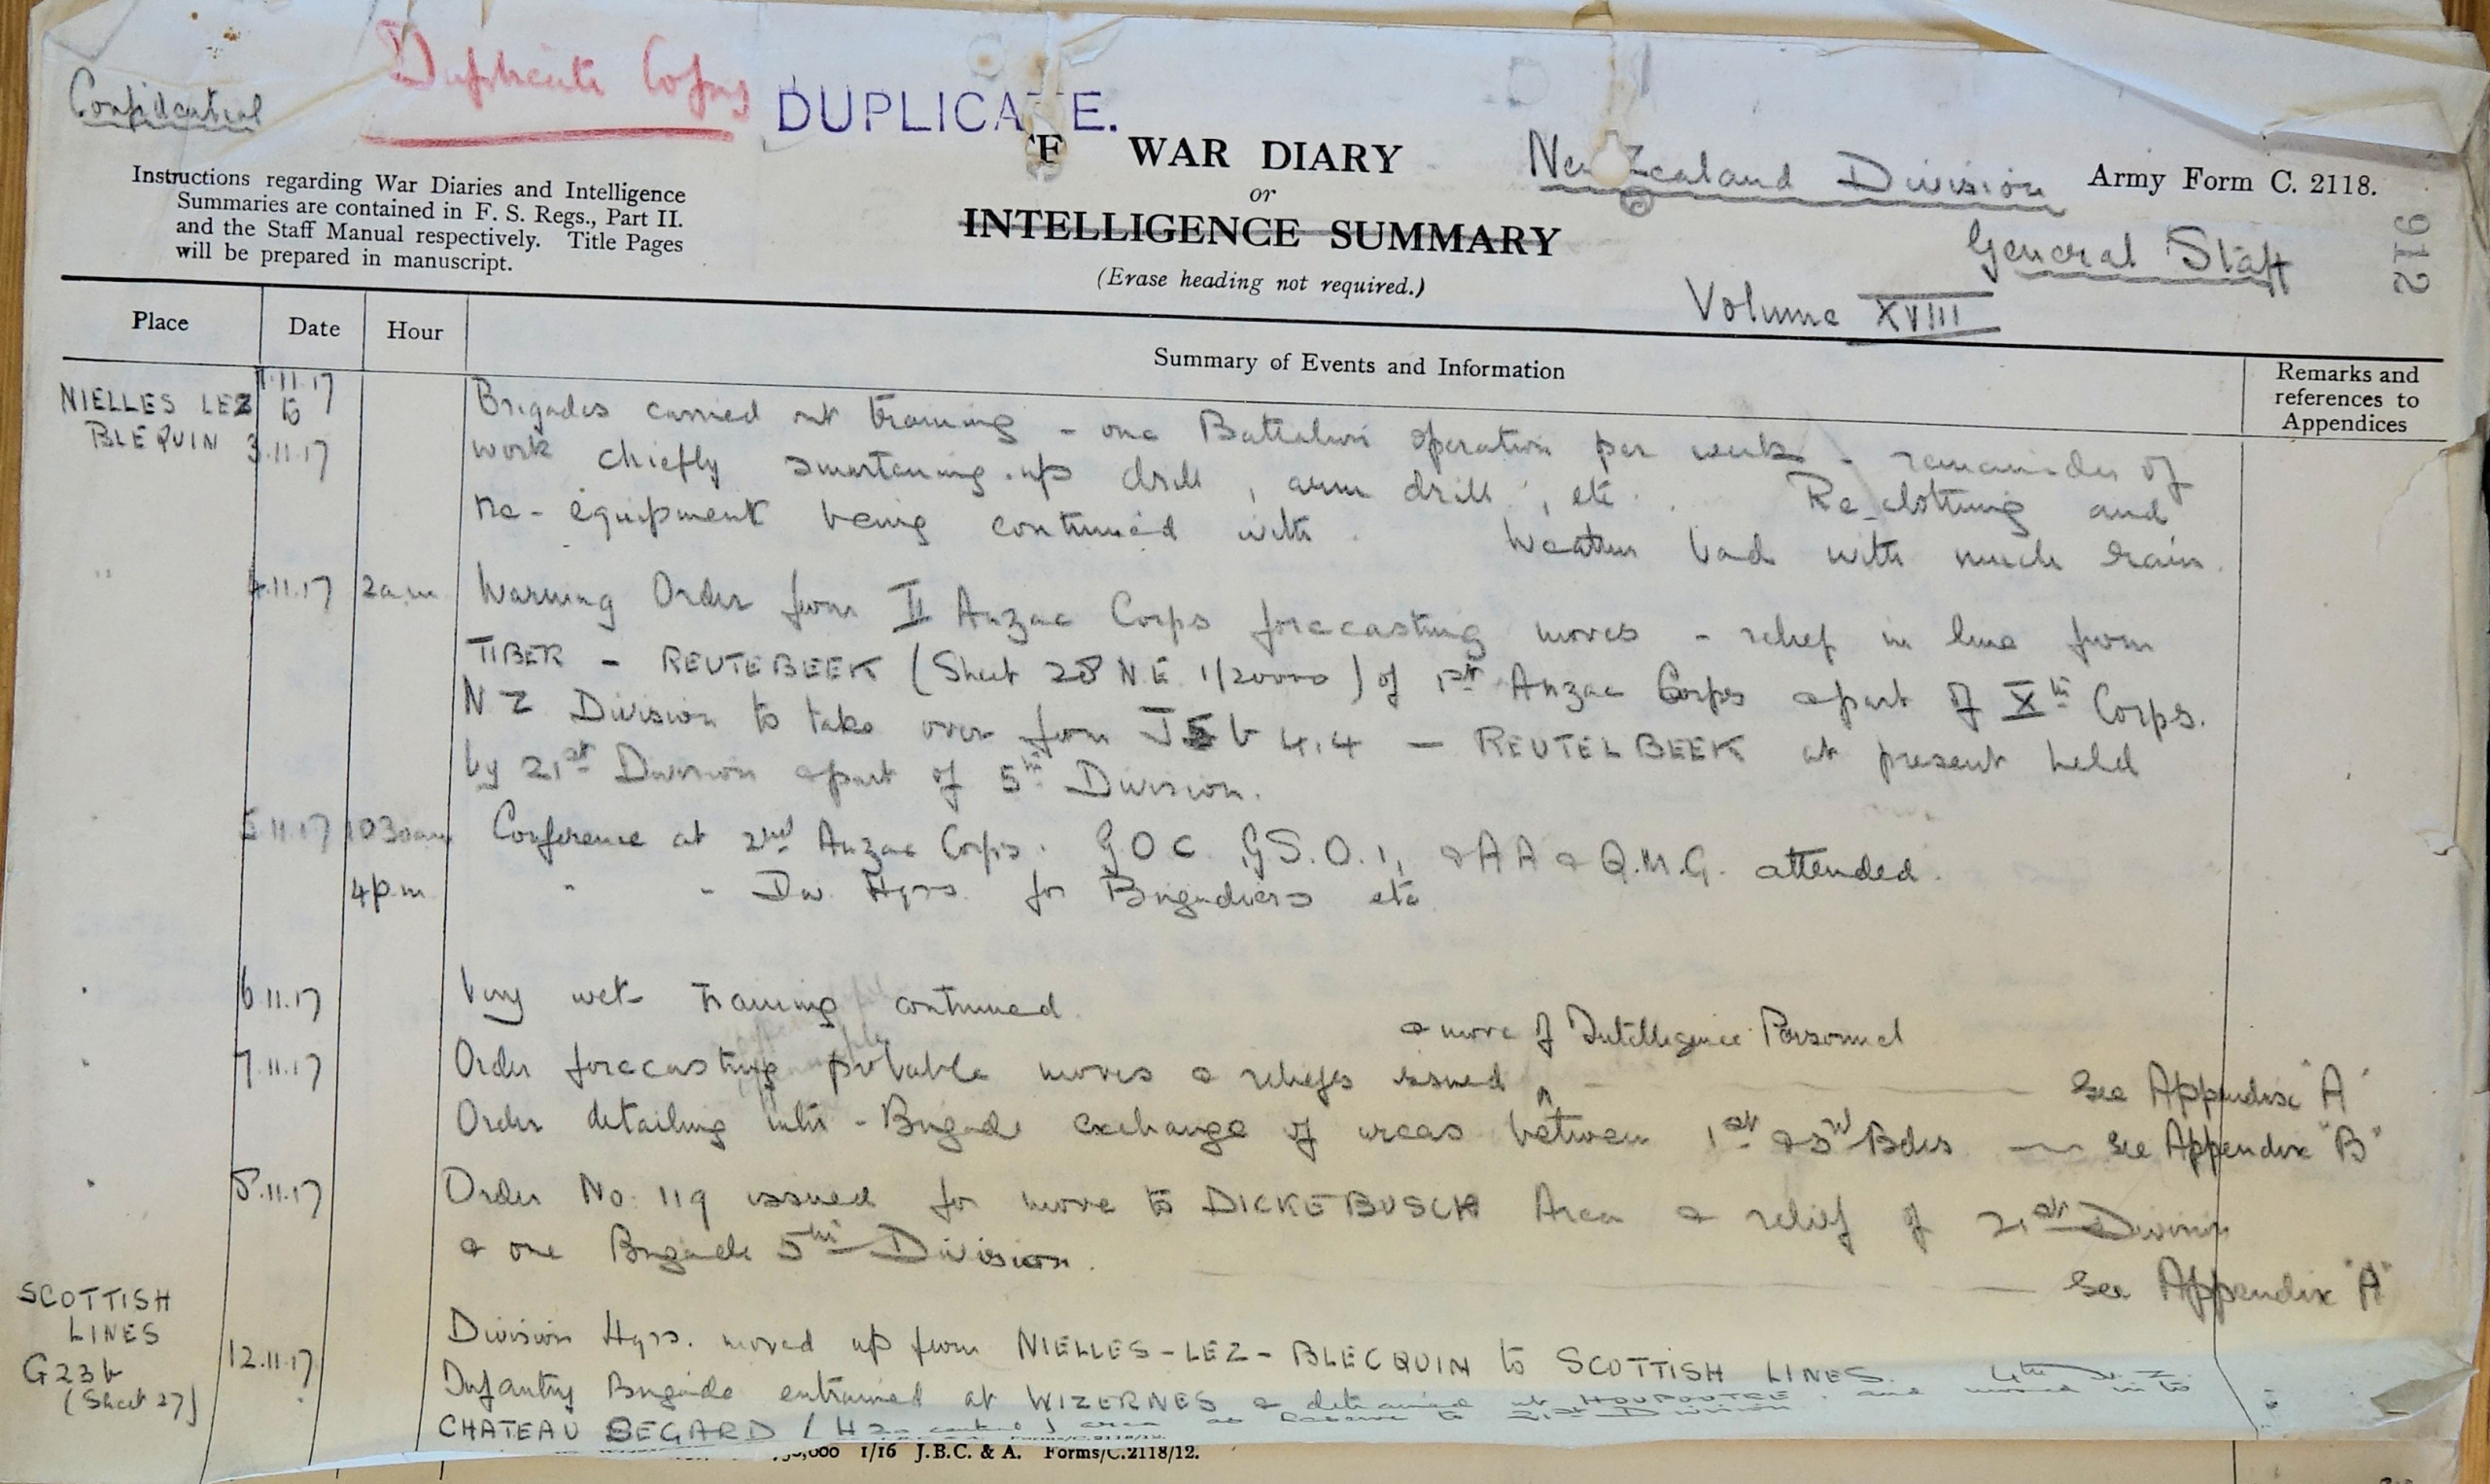 Confidential
Duplicate Copy
DUPLICATE.
WAR DIARY
or
INTELLIGENCE SUMMARY
(Erase heading not required.)
New Zealand Division
General Staff
Volume XVIII
Army Form C. 2118.
912
Instructions regarding War Diaries and Intelligence
Summaries are contained in F. S. Regs., Part II.
and the Staff Manual respectively. Title Pages
will be prepared in manuscript.
Place Date Hour Summary of Events and Information Remarks and references to Appendices
NIELLES LEZ BLEQUIN 1.11.17 to 3.11.17 Brigades carried out training - one Battalion operation per week - remainder of
work chiefly smartening-up drill, arm drill, etc. Re-clothing and
re-equipment being continued with. Weather bad with much rain.
" 4.11.17 2am Warning Order from II Anzac Corps forecasting moves - relief in line from
TIBER - REUTEBEEK (Sheet 28 N.E. 1/20000) of 1st Anzac Corps & part of Xth Corps.
NZ Division to take over from J5b 4.4 - REUTELBEEK at present held
by 21st Division & part of 5th Division.
5.11.17 1030am Conference at 2nd Anzac Corps. GOC GS.O.1, & AA & Q.M.G. attended.
4pm " " Div. Hqrs. for Brigadiers etc
" 6.11.17 Very wet - Training continued.
" 7.11.17 Order forecasting probable moves & reliefs issued & move of Intelligence Personnel — See Appendix "A"
Order detailing inter-Brigade exchange of areas between 1st & 3rd Bdes — See Appendix "B"
" 8.11.17 Order No. 119 issued for move to DICKEBUSCH Area & relief of 21st Division
& one Brigade 5th Division. — See Appendix "A"
SCOTTISH LINES G23b (Sheet 27) 12.11.17 Division Hqrs. moved up from NIELLES-LEZ-BLECQUIN to SCOTTISH LINES. 4th N.Z.
Infantry Brigade entrained at WIZERNES & detrained at HOUPOUTRE and moved into
CHATEAU SEGARD (H30 central) area as Reserve to 21st Division
1/16 J.B.C. & A. Forms/C.2118/12.